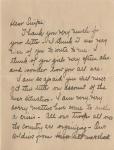 Dear Eunice,
Thank you very much for
your letter. I think it was very
nice of you to write to me. I
think of you girls very often also
and wonder how you all are.
I am so afraid you will never
get this letter on account of the
war situation. I am now very
sorry matters have come to such
a crisis. All our troops all over
the country are organizing. Our
soldiers from have left